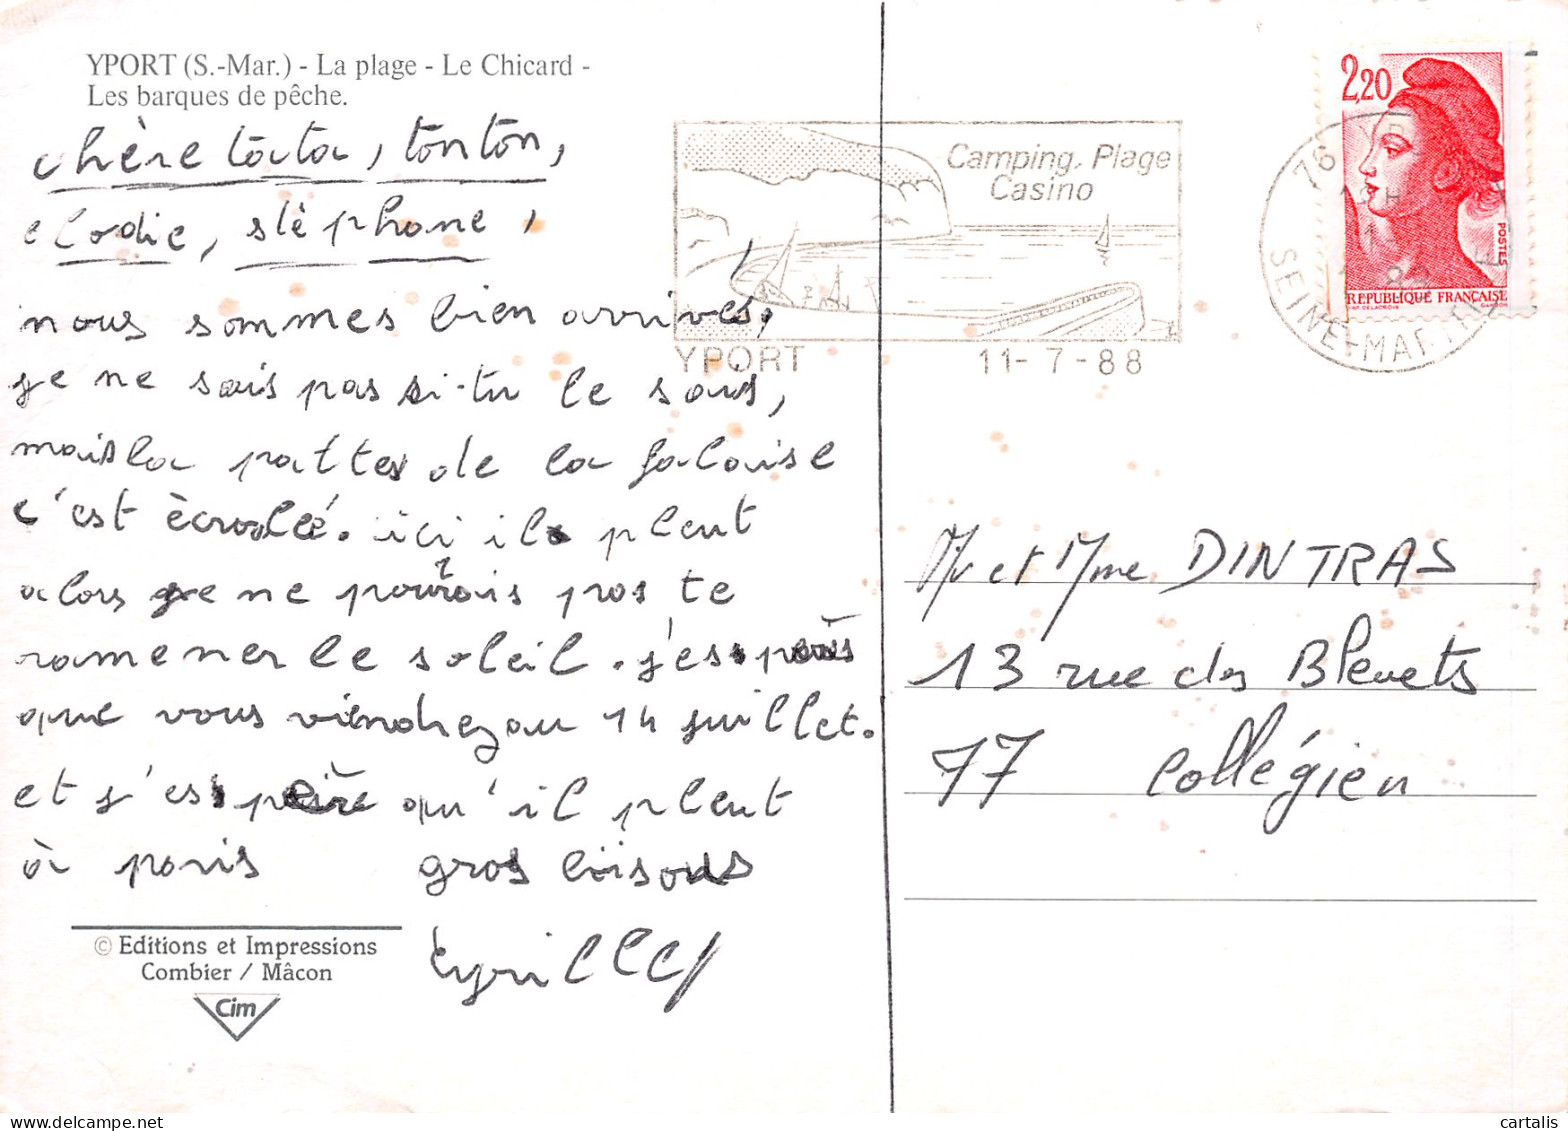 YPORT (S.-Mar.) - La plage - Le Chicard -
Les barques de pêche.
chère tata, tonton,
elodie, stèphane,
nous sommes bien arrivés,
je ne sais pas si-tu le sais,
mais la pattes de la falaise
c'est ècroulé. ici il pleut
alors je ne pourrais pas te
ramener le soleil. j'espère
que vous viendrez au 14 juillet.
et j'espère qu'il pleut
à paris gros bisous
Cyrille
© Editions et Impressions
Combier / Mâcon
Cim
Camping. Plage
Casino
YPORT 11-7-88
76
SEINE-MARITIME
2,20
POSTES
REPUBLIQUE FRANÇAISE
Mr et Mme DINTRAS
13 rue des Bleuets
77 Collégien
cartalis